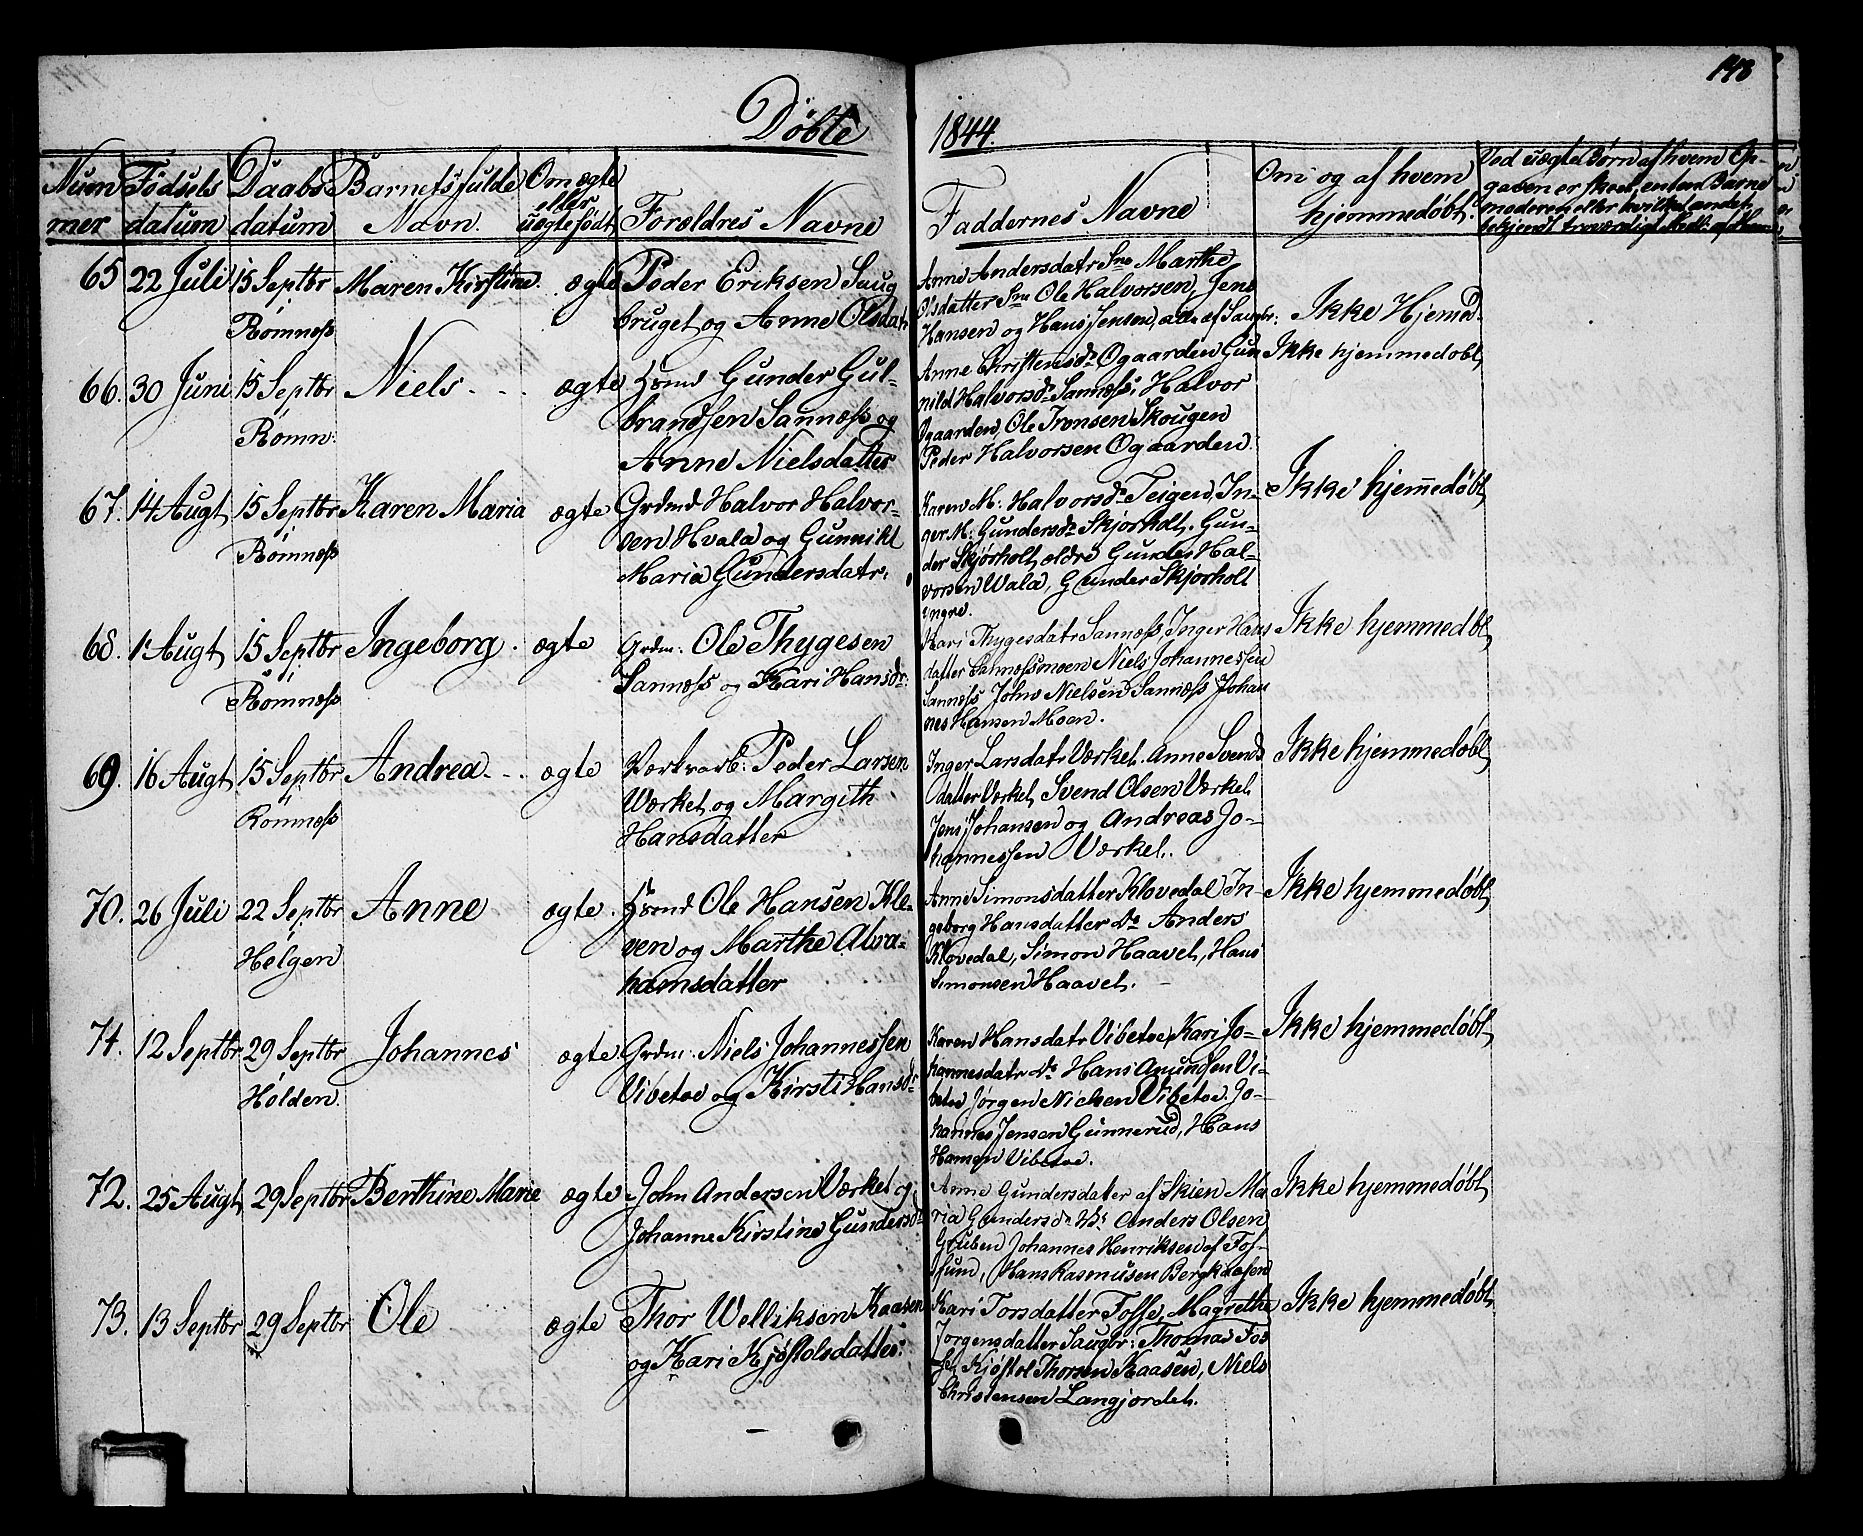 148
Døbte 1844.
Nummer
Fødsels datum
Daabs datum
Barnets fulde Navn.
Om ægte eller uægte født
Forældres Navne
Faddernes Navne
Om og af hvem hjemmedøbt.
Ved uægte Børn af hvem Opgaven er skeet, enten Barnemoderen eller hvilket andet
65 22 Juli 15 Septbr Maren Kirstine. ægte Peder Eriksen Saug
Rømnæss
bruget og Anne Olsdatr
Anne Andersdatr Sne Marthe
Olsdatter Sne Ole Halvorsen, Jens
Hansen og Hans Jensen, alle af Saugbr:
Ikke Hjemed.
66. 30 Juni 15 Septbr Niels - - - ægte Hsmd Gunder Gul-
Rømn:
brandsen Sannæss og
Anne Nielsdatter
Anne Christensdr Ogaarden Gun
nild Halvorsdr Sannæss, Halvor
Ogaarden, Ole Tronsen Skougen
Peder Halvorsen Ogaarden
Ikke hjemmedobt,
67. 14 Augt 15 Septbr Karen Maria ægte Grdmd Halvor Halvor-
Rømnæss
sen Hvala og Gunnild
Maria Gundersdatr.
Karen M: Halvorsdr Teigen, In-
ger M: Gundersdr Skjorholt. Gun-
der Skjørholt ældre Gunder Hal-
vorsen Wala, Gunder Skjorholt
yngre.
Ikke hjemmedøbt
68. 1 Augt 15 Septbr Ingeborg. ægte Grdm: Ole Thygesen
Rømnæss
Sannæss og Kari Hansdr:
Kari Thygesdatr Sannæss, Inger Hans
datter Sannæssmoen Niels Johannessen
Sannæss John Nielsen Sannæss Johan
nes Hansen Moen.
Ikke hjemmedøbt,
69. 16 Augt 15 Septbr Andrea - - . ægte Værksarb: Peder Larsen
Rømnæss
Værket og Margith
Hansdatter
Inger Larsdatr Værket. Anne Svends
datter Værket, Svend Olsen Værket
Jens Johansen og Andreas Jo-
hannessen Værket.
Ikke hjemmedøbt
70. 26 Juli 22 Septbr Anne ægte. Hsmd Ole Hansen Kle-
Helgen
ven og Marthe Abra-
hamsdatter
Anne Simonsdatter Klovedal In-
geborg Hansdatter do Anders
Klovedal, Simon Haavet, Hans
Simonsen Haavet. -
Ikke hjemmedøbt
71. 12 Septbr 29 Septbr Johannes ægte Grdm: Niels Johannessen
Holden.
Vibetoe og Kirsti Hansdr
Karen Hansdatr Vibetoe, Kari Jo-
hannesdatr do Hans Amundsen Vi-
betoe Jørgen Nielsen Vibetoe. Jo-
hannes Jensen Gunnerud, Hans
Hansen Vibetoe.
Ikke hjemmedøbt
72. 25 Augt 29 Septbr Berthine Marie ægte John Andersen Værket og
Johanne Kirstine Gundersdr
Anne Gundersdatter af Skien Ma
ria Gundersdr Anders Olsen
Gruben Johannes Henriksen af Fos-
sum, Hans Rasmusen Bergkaasen
Ikke hjemmedøbt
73. 13 Septbr 29 Septbr Ole ægte Thor Welliksen Kaasen
og Kari Kjøstolsdatter
Kari Torsdatter Fosse, Magrethe
Jorgensdatter Saugbr: Thomas Fos
se, Kjøstol Thorsen Kaasen, Niels
Christensen Langjordet.
Ikke hjemmedøbt